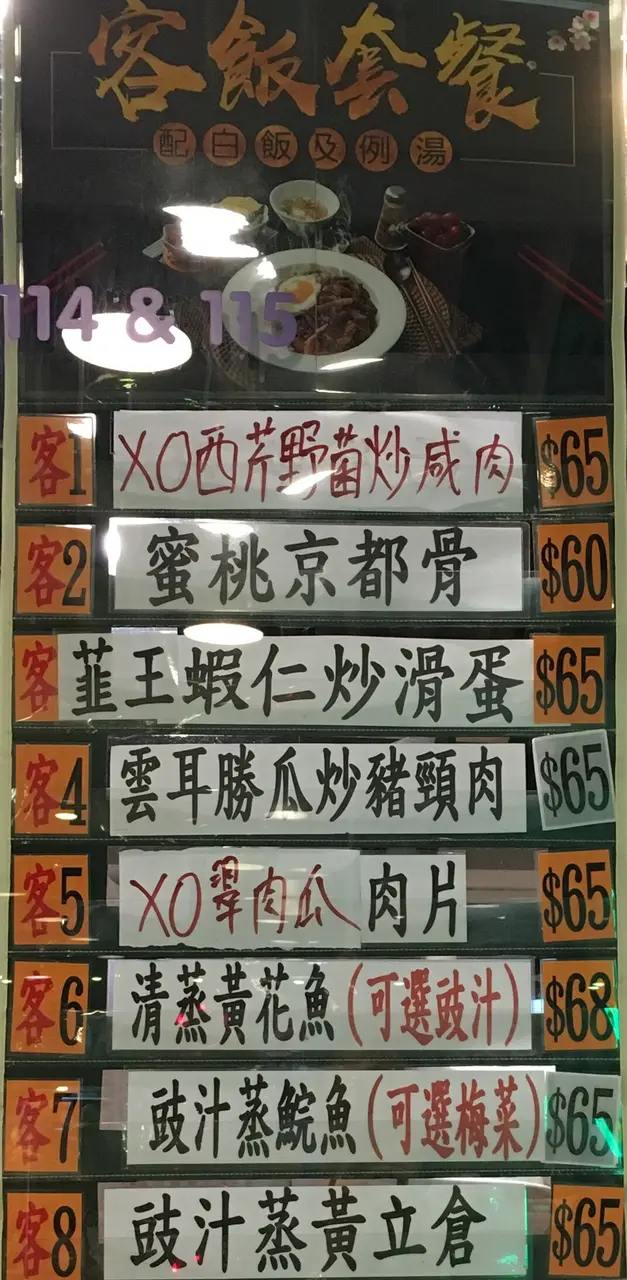 客飯套餐
配白飯及例湯
114 & 115
客1 XO西芹野菌炒咸肉 $65
客2 蜜桃京都骨 $60
客 韮王蝦仁炒滑蛋 $65
客4 雲耳勝瓜炒豬頸肉 $65
客5 XO翠肉瓜肉片 $65
客6 清蒸黃花魚(可選豉汁) $68
客7 豉汁蒸鯇魚(可選梅菜) $65
客8 豉汁蒸黃立倉 $65